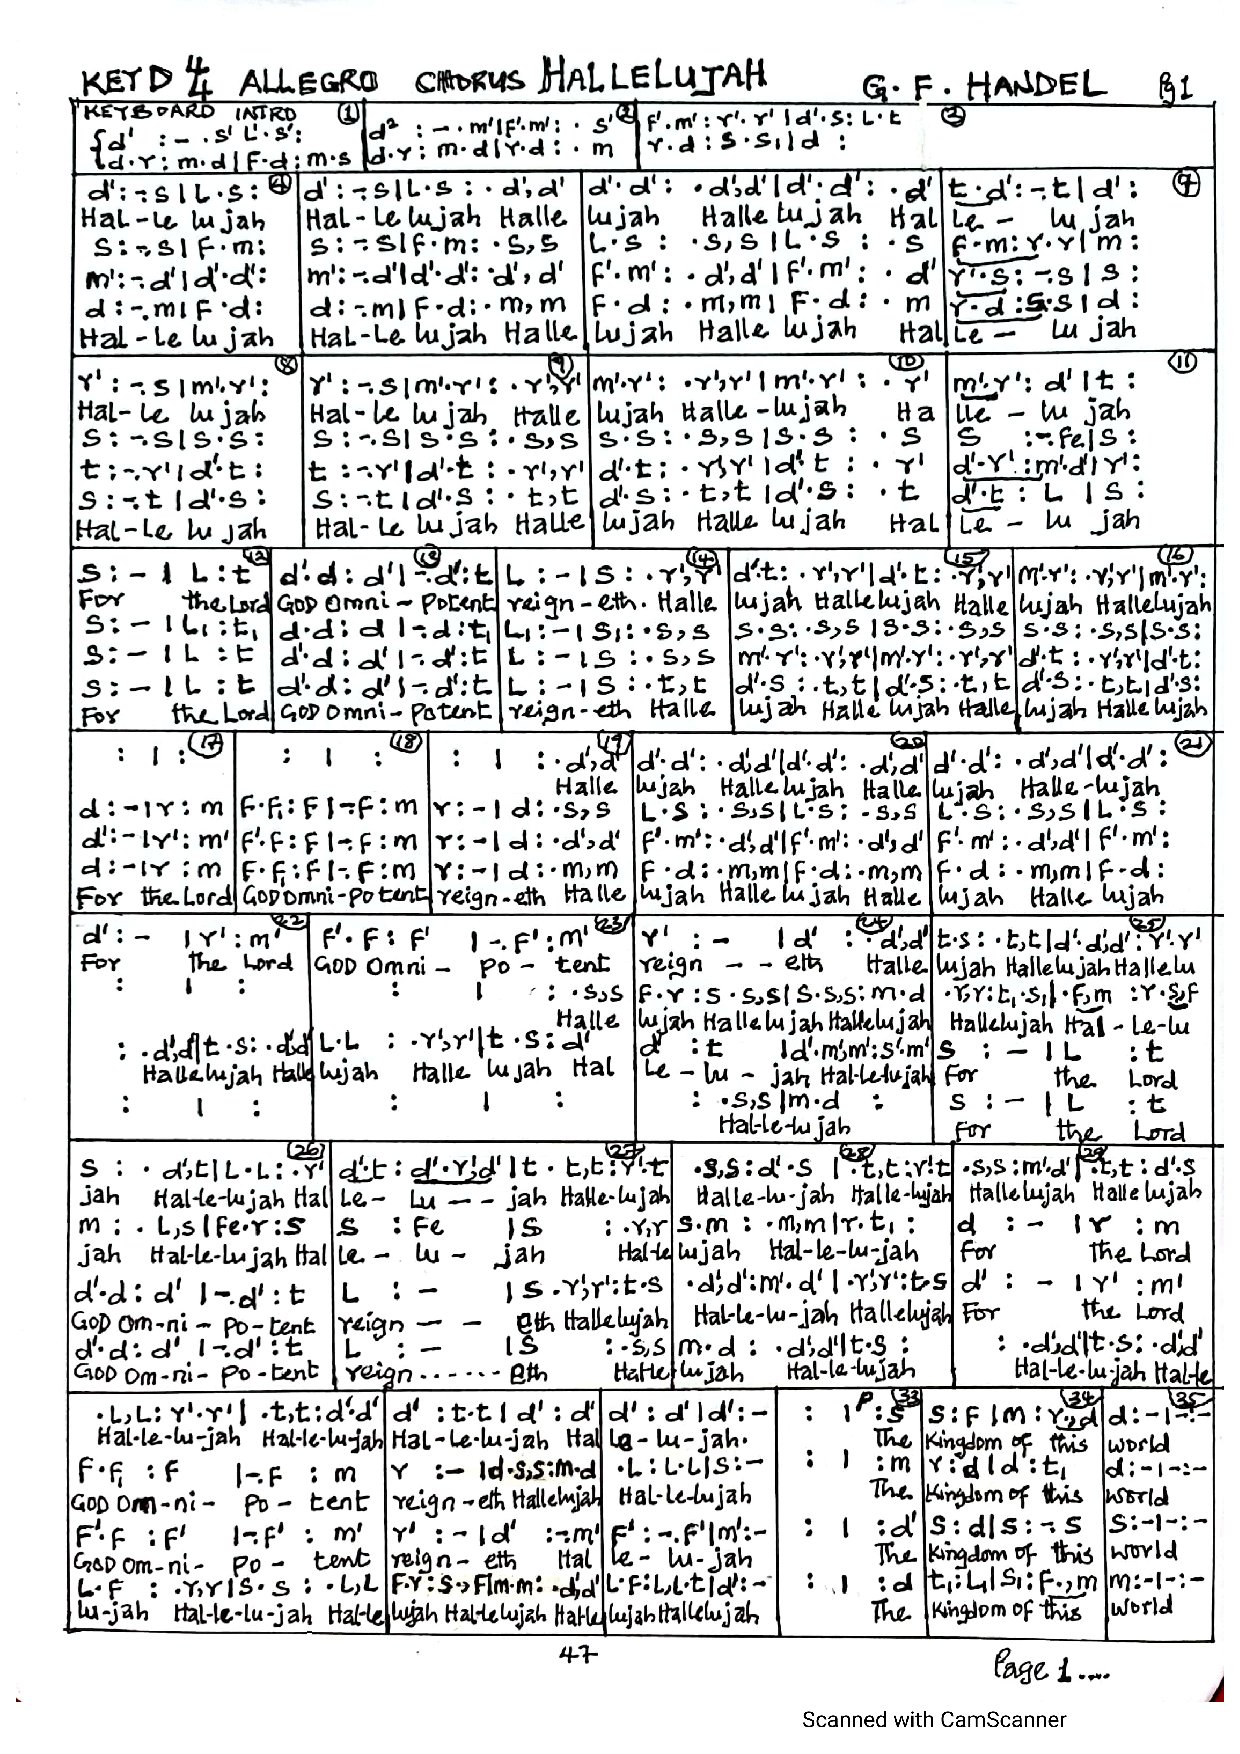 KEY D 4/4 ALLEGRO CHORUS HALLELUJAH G. F. HANDEL Pg1
KEYBOARD INTRO ① ② ③
{d' : – . s' L'. s': d² : – . m'|F'. m': . s' F'. m': r'. r' |d'. s: L. t
{d. r: m. d | F. d: m. s d. r: m. d |r. d: . m r. d : s. s₁|d :
d': -. s | L. s: ④ d': -. s | L. s : . d', d' d'. d': . d', d' | d'. d': . d' t. d': -. t | d': ⑦
Hal-Le lu jah Hal-Le lu jah Halle lujah Halle lujah Hal Le – lu jah
s: -. s | F. m: s: -. s | f. m: . s, s L. s : . s, s | L. s : . s F. m: r. r | m:
m': -. d' | d'. d': m': -. d' | d'. d': . d', d' F'. m': . d', d' | F'. m': . d' r'. s: -. s | s :
d: -. m | F. d: d: -. m | F. d: . m, m F. d: . m, m | F. d: . m r. d : s. s | d :
Hal-Le lu jah Hal-Le lu jah Halle lujah Halle lujah Hal Le – lu jah
r' : -. s | m'. r': ⑧ r': -. s | m'. r': . r', r' ⑨ m'. r': . r', r' | m'. r' : . r' ⑩ m'. r': d' | t : ⑪
Hal-le lu jah Hal-le lu jah Halle lujah Halle-lujah Ha lle – lu jah
s: -. s | s. s: s: -. s | s. s: . s, s s. s: . s, s | s. s : . s s : -. fe | s :
t: -. r' | d'. t: t: -. r' | d'. t : . r', r' d'. t: . r', r' | d'. t : . r' d'. r' : m'. d' | r':
s: -. t | d'. s: s: -. t | d'. s: . t, t d'. s: . t, t | d'. s: . t d'. t : L | s :
Hal-Le lu jah Hal-Le lu jah Halle lujah Halle lujah Hal Le – lu jah
s: – | L: t ⑫ d'. d: d' | -. d': t ⑬ L : – | s : . r', r' ⑭ d'. t: . r', r' | d'. t: . r', r' ⑮ m'. r': . r', r' | m'. r': ⑯
For the Lord GOD Omni-Potent reign-eth. Halle lujah Hallelujah Halle lujah Hallelujah
s: – | L₁: t₁ d. d: d | -. d: t₁ L₁: – | s₁: . s, s s. s: . s, s | s. s: . s, s s. s: . s, s | s. s:
s: – | L : t d'. d: d' | -. d': t L : – | s : . s, s m'. r': . r', r' | m'. r': . r', r' d'. t : . r', r' | d'. t:
s: – | L : t d'. d: d' | -. d': t L : – | s : . t, t d'. s : . t, t | d'. s: . t, t d'. s: . t, t | d'. s:
For the Lord GOD Omni-Potent reign-eth Halle lujah Halle lujah Halle lujah Halle lujah
: | : ⑰ : | : ⑱ : | : . d', d' ⑲ d'. d': . d', d' | d'. d': . d', d' ⑳ d'. d': . d', d' | d'. d': ㉑
Halle lujah Hallelujah Halle lujah Halle-lujah
d: – | r : m F. F₁: F | -. F: m r: – | d: . s, s L. s : . s, s | L. s: . s, s L. s: . s, s | L. s :
d': – | r': m' F'. F: F | -. F: m r: – | d: . d', d' F'. m': . d', d' | F'. m': . d', d' F'. m': . d', d' | F'. m':
d: – | r : m F. F₁: F | -. F: m r: – | d: . m, m F. d: . m, m | F. d: . m, m F. d: . m, m | F. d:
For the Lord GOD omni-potent reign-eth Halle lujah Halle lujah Halle lujah Halle lujah
d': – | r': m' ㉒ F'. F: F' | -. F': m' ㉓ r' : – | d' : . d', d' ㉔ t. s: . t, t | d'. d', d': r'. r' ㉕
For the Lord GOD Omni – po – tent reign – – eth Halle lujah Hallelujah Hallelu
: | : : | : . s, s F. r : s. s, s | s. s, s: m. d . r, r: t₁. s₁ | . F, m : r. s, F
Halle lujah Hallelujah Hallelujah Hallelujah Hal-Le-lu
: . d', d' | t. s: . d', d' L. L : . r', r' | t. s: d' d' : t | d'. m', m': s'. m' s : – | L : t
Hallelujah Halle lujah Halle lujah Hal Le – lu – jah Hal-le-lujah For the Lord
: | : : | : : . s, s | m. d : s : – | L : t
Hal-le-lu jah For the Lord
s : . d', t | L. L: . r' ㉖ d'. t: d'. r', d' | t. t, t: r'. t ㉗ . s, s: d'. s | . t, t: r'. t ㉘ . s, s: m'. d' | . t, t: d'. s ㉙
jah Hal-le-lujah Hal Le- Lu – – jah Halle-lujah Halle-lu-jah Halle-lujah Hallelujah Halle lujah
m : . L, s | fe. r: s s : Fe | s : . r, r s. m : . m, m | r. t₁ : d : – | r : m
jah Hal-le-lujah Hal le – lu – jah Hal-le lujah Hal-le-lu-jah For the Lord
d'. d: d' | -. d': t L : – | s. r', r': t. s . d', d': m'. d' | . r', r': t. s d' : – | r' : m'
GOD Om-ni – po-tent reign – – eth Hallelujah Hal-le-lu-jah Hallelujah For the Lord
d'. d: d' | -. d': t L : – | s : . s, s m. d : . d', d' | t. s : : . d', d' | t. s: . d', d'
GOD Om-ni- po-tent reign ...... eth Halle lujah Hal-le-lujah Hal-le-lu-jah Hal-le
. L, L: r'. r' | . t, t: d'. d' d' : t. t | d' : d' d' : d' | d': – : | P : s ㉝ s: F | m : r, d ㉞ d: – | -: – ㉟
Hal-le-lu-jah Hal-le-lu-jah Hal-Le-lu-jah Hal Le-lu-jah. The Kingdom of this World
F. F₁ : F | -. F : m r : – | d. s, s: m. d . L : L. L | s: – : | : m r : d | d : t₁ d: – | -: –
GOD Om-ni- Po – tent reign-eth Hallelujah Hal-le-lujah The Kingdom of this World
F'. F : F' | -. F' : m' r' : – | d' : -. m' F' : -. F' | m': – : | : d' s : d | s : -. s s: – | -: –
GOD Om-ni- Po – tent reign- eth Hal le- lu-jah The Kingdom of this World
L. F : . r, r | s. s : . L, L F. r : s. , F | m. m: . d', d' L. F: L, L. t | d': – : | : d t₁: L₁ | s₁: F. , m m: – | -: –
lu-jah Hal-le-lu-jah Hal-le lujah Hal-lelujah Halle lujah Hallelujah The Kingdom of this World
47
Page 1....
Scanned with CamScanner